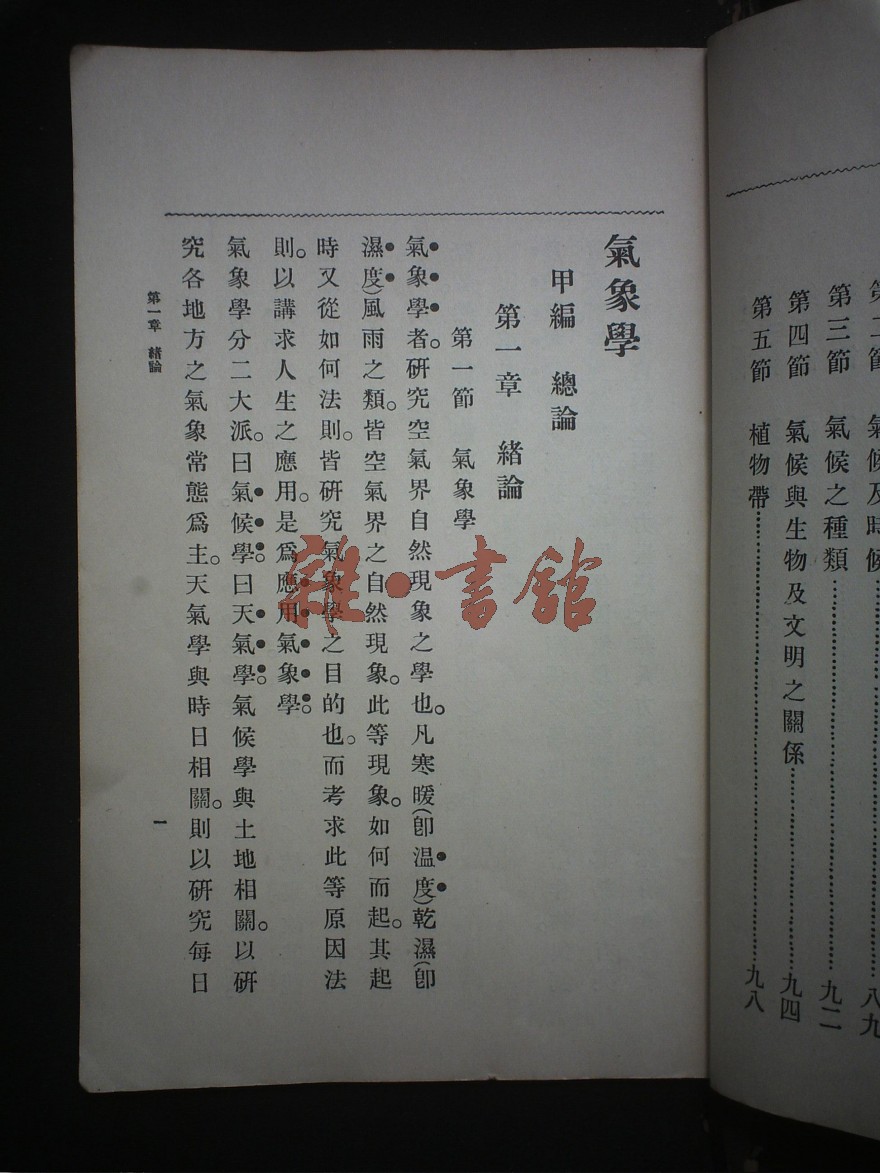 第二節 氣候及時候……八九
第三節 氣候之種類……九二
第四節 氣候與生物及文明之關係……九四
第五節 植物帶……九八
氣象學
甲編 總論
第一章 緒論
第一節 氣象學
氣象學者。硏究空氣界自然現象之學也。凡寒暖(卽温度)乾濕(卽
濕度)風雨之類。皆空氣界之自然現象。此等現象。如何而起。其起
時又從如何法則。皆硏究氣象學之目的也。而考求此等原因法
則。以講求人生之應用。是爲應用氣象學。
氣象學分二大派。曰氣候學。曰天氣學。氣候學與土地相關。以硏
究各地方之氣象常態爲主。天氣學與時日相關。則以硏究每日
第一章 緒論
一
雜·書館